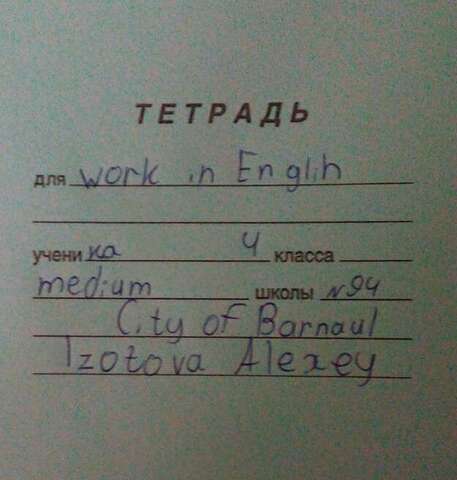 ТЕТРАДЬ
для work in Englih
ученика 4 класса
medium школы №94
City of Barnaul
Izotova Alexey